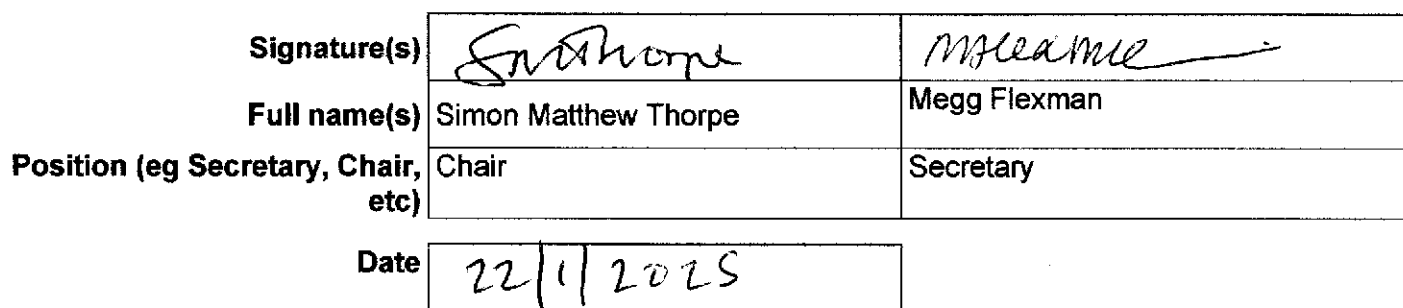 Signature(s) SMThorpe
Full name(s) Simon Matthew Thorpe Megg Flexman
Position (eg Secretary, Chair, etc) Chair Secretary
Date 22/1/2025